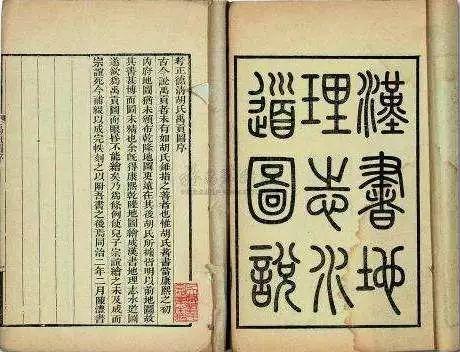 漢書地
理志水
道圖說
考正德清胡氏禹貢圖序
古今說禹貢者未有如胡氏錐指之善者也惟胡氏著書當康熙之初
內府地圖猶未頒布乾隆地圖更遠在其後胡氏所據皆明以前地圖故
其書甚博而圖未精也余既得康熙乾隆地圖繪成漢書地理志水道圖
遂欲爲禹貢圖而眼眵不能繪矣乃爲條例使兒子宗誼繪之未及成而
宗誼死今補綴以成完帙刻之以附吾書之後焉同治二年二月陳澧書